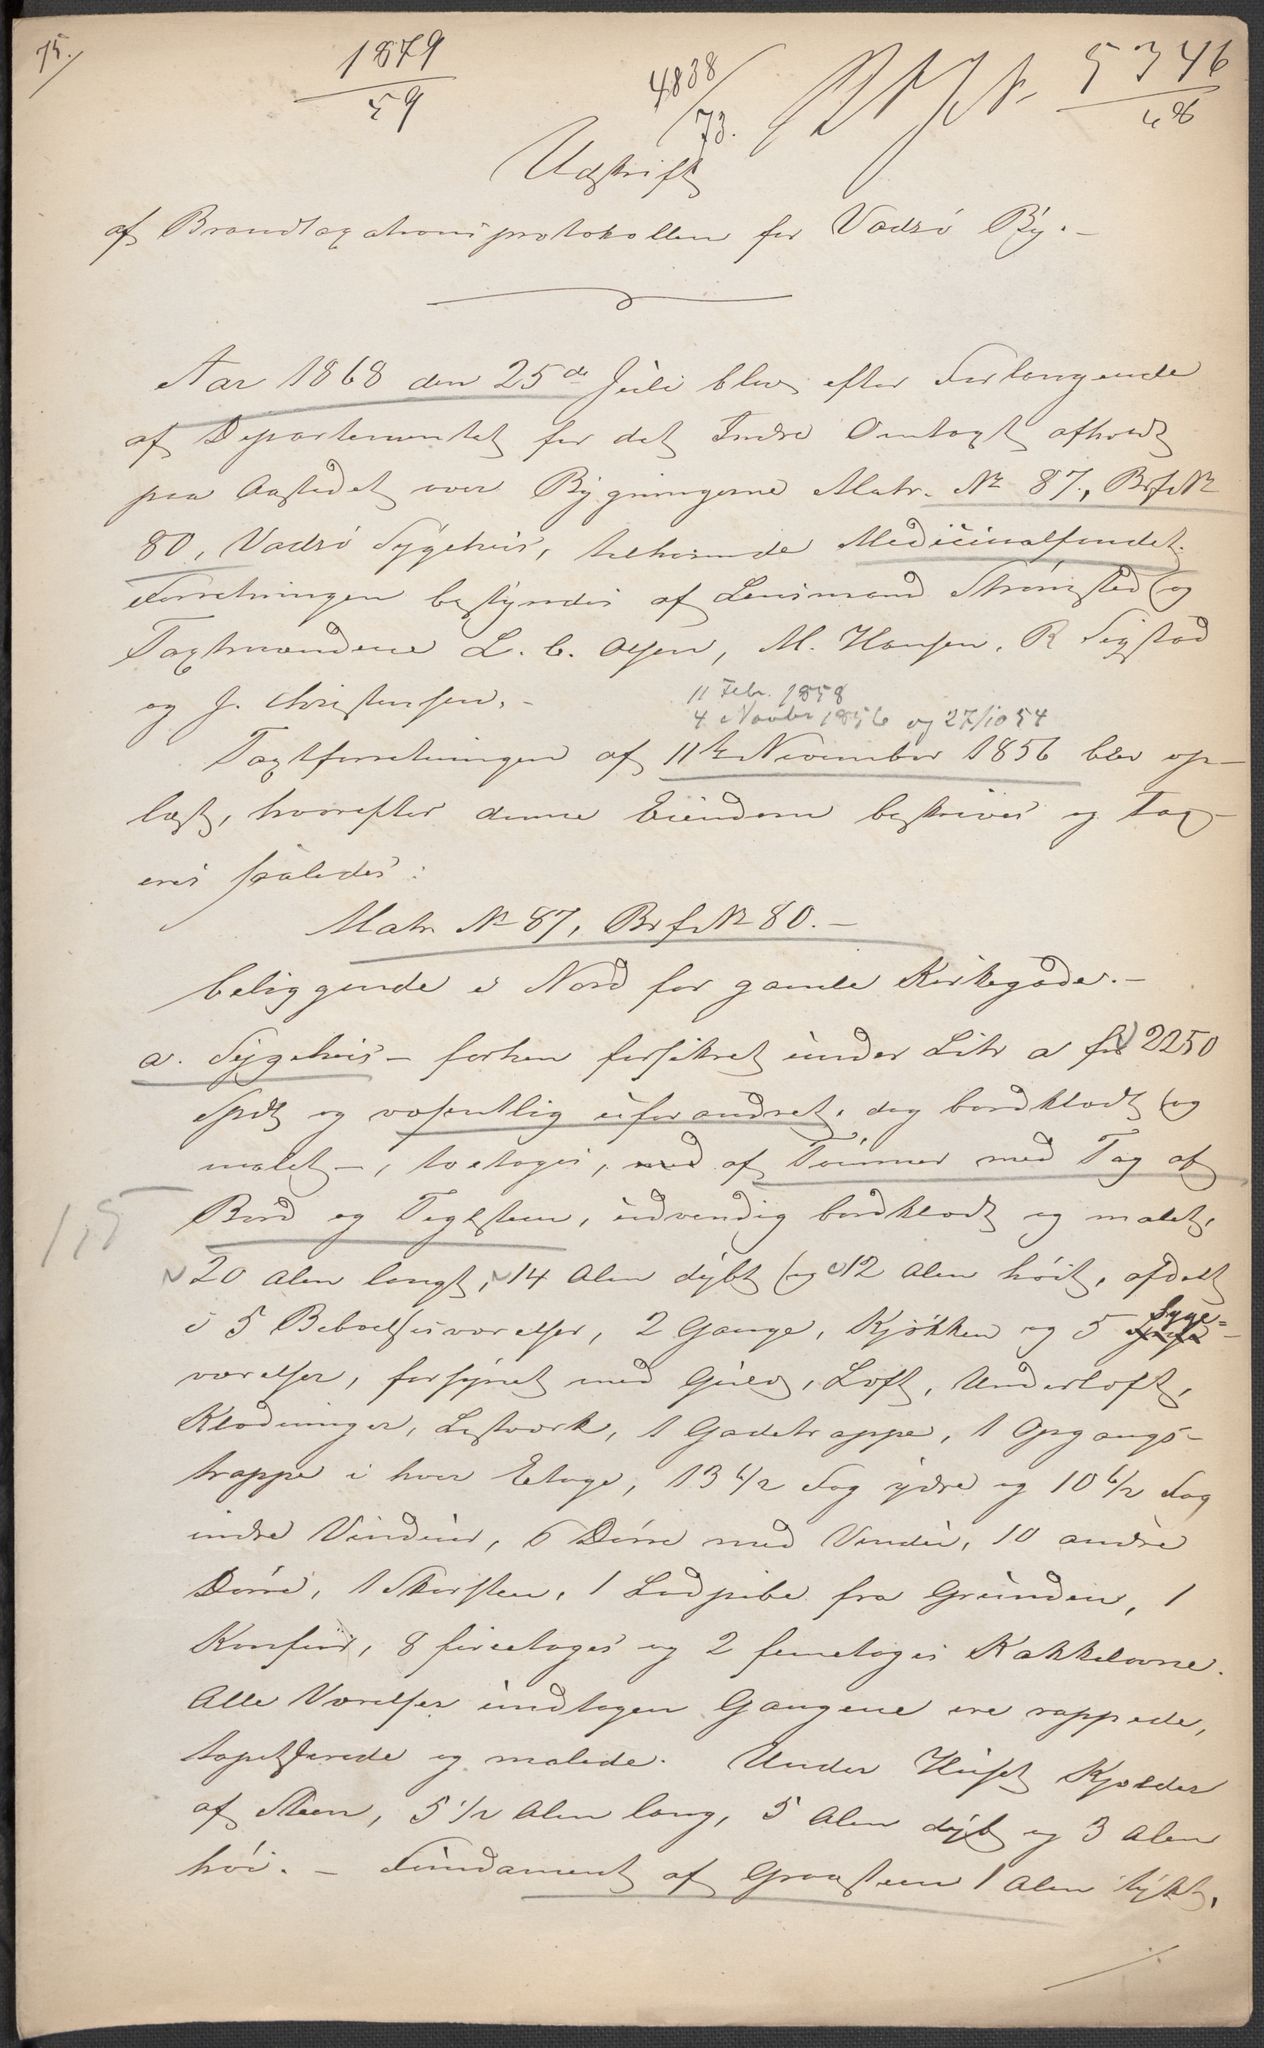 75.
1879
59
4838
73.
5346
Udskrift
af Brandtaxationsprotokollen for Vadsö By.-
Aar 1868 den 25de Juli blev efter Forlangende
af Departementet for det Indre Omtaxt afholdt
paa Aastedet over Bygningerne Matr. No 87, Brf. No
80, Vadsö Sygehus, tilhörende Medicinalfondet.
Forretningen bestyredes af Lensmand Strömsted og
Taxtmændene L. C. Olsen, M. Hansen, R Sigstad
og J. Christensen.-
11 Febr. 1858
4 Novbr 1856 og 27/10 54
Taxtforretningen af 11te November 1856 blev op-
læst, hvorefter denne Eiendom beskrives og Tax-
eres saaledes:
Matr No 87, Brf. No 80.-
beliggende i Nord for gamle Kirkegade.-
a. Sygehus - forhen forsikret under Litr a for 2250
Spdl og væsentlig uforandret, dog bordklædt og
malet -, toetages, med af Tömmer med Tag af
Bord og Teglsteen, udvendig bordklædt og malet,
1,5
20 Alen langt, 14 Alen dybt og 12 Alen höit, afdelt
i 5 Beboelsesværelser, 2 Gange, Kjökken og 5 Syge-
værelser, forsynet med Gulv, Loft, Underloft,
Klædninger, Listværk, 1 Gadetrappe, 1 Opgangs-
trappe i hver Etage, 13 6/2 Fag ydre og 10 6/2 Fag
indre Vinduer, 6 Dörre med Vindu, 10 andre
Dörre, 1 Skorsten, 1 Lodpibe fra Grunden, 1
Komfur, 8 fireetages og 2 femetages Kakkelovne.
Alle Værelser undtagen Gangene ere rappede,
tapetserede og malede. Under Huset Kjelder
af Steen, 5 1/2 Alen lang, 5 Alen dyb og 3 Alen
höi.- Fundament af Graasteen 1 Alen tykt,